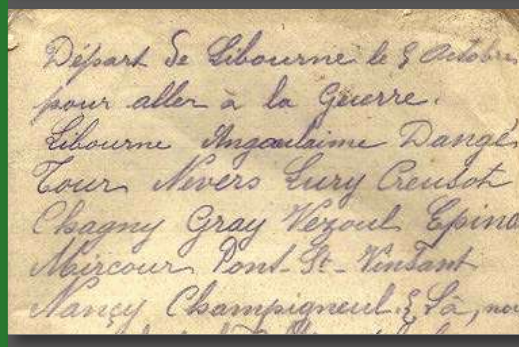 Départ de Libourne le 9 Octobre
pour aller à la Guerre.
Libourne Angoulaime Dangé
Tour Nevers Lury Creusot
Chagny Gray Vezoul Epina
Mircour Pont-St-Vinsant
Nançy Champigneul. Là, no